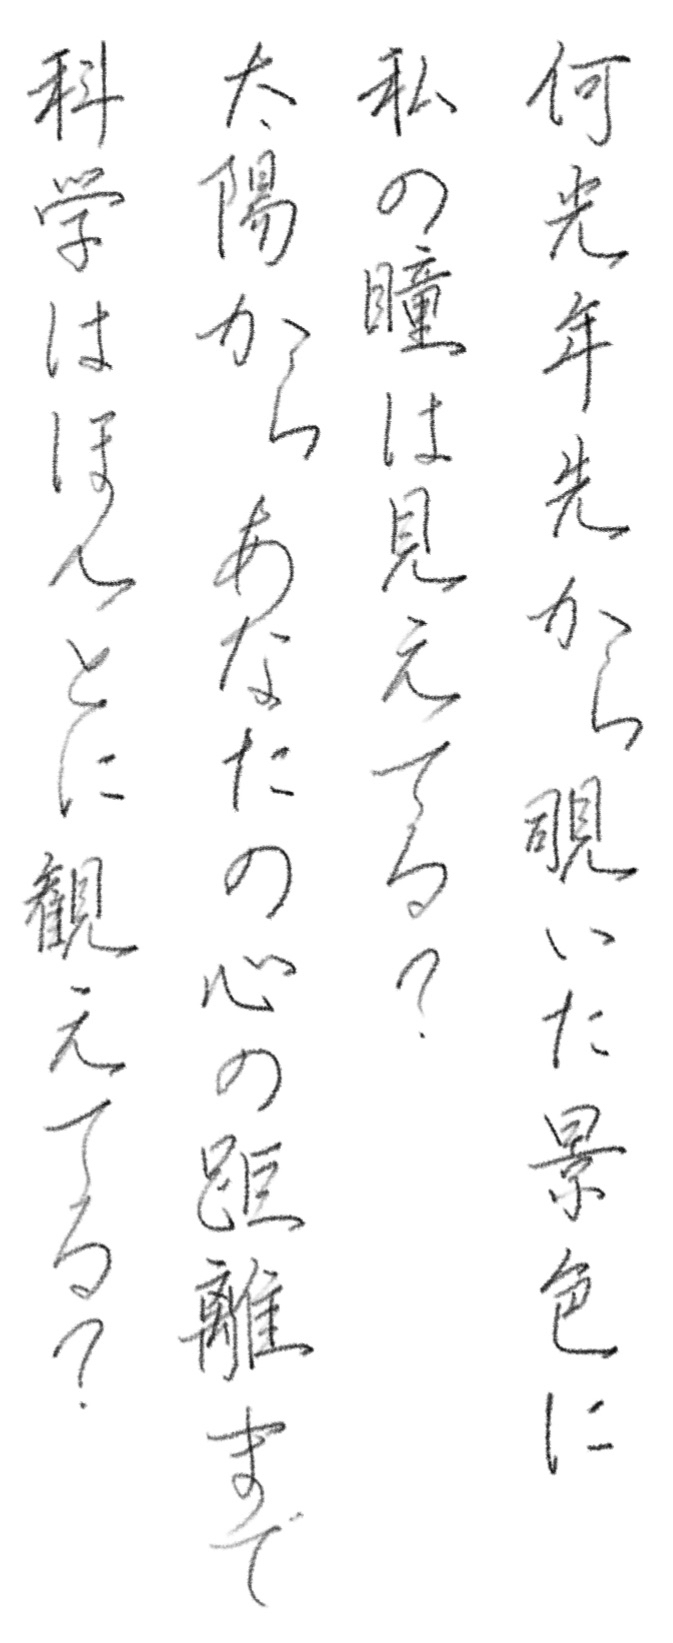 何光年先から覗いた景色に
私の瞳は見えてる？
太陽からあなたの心の距離まで
科学はほんとに観えてる？